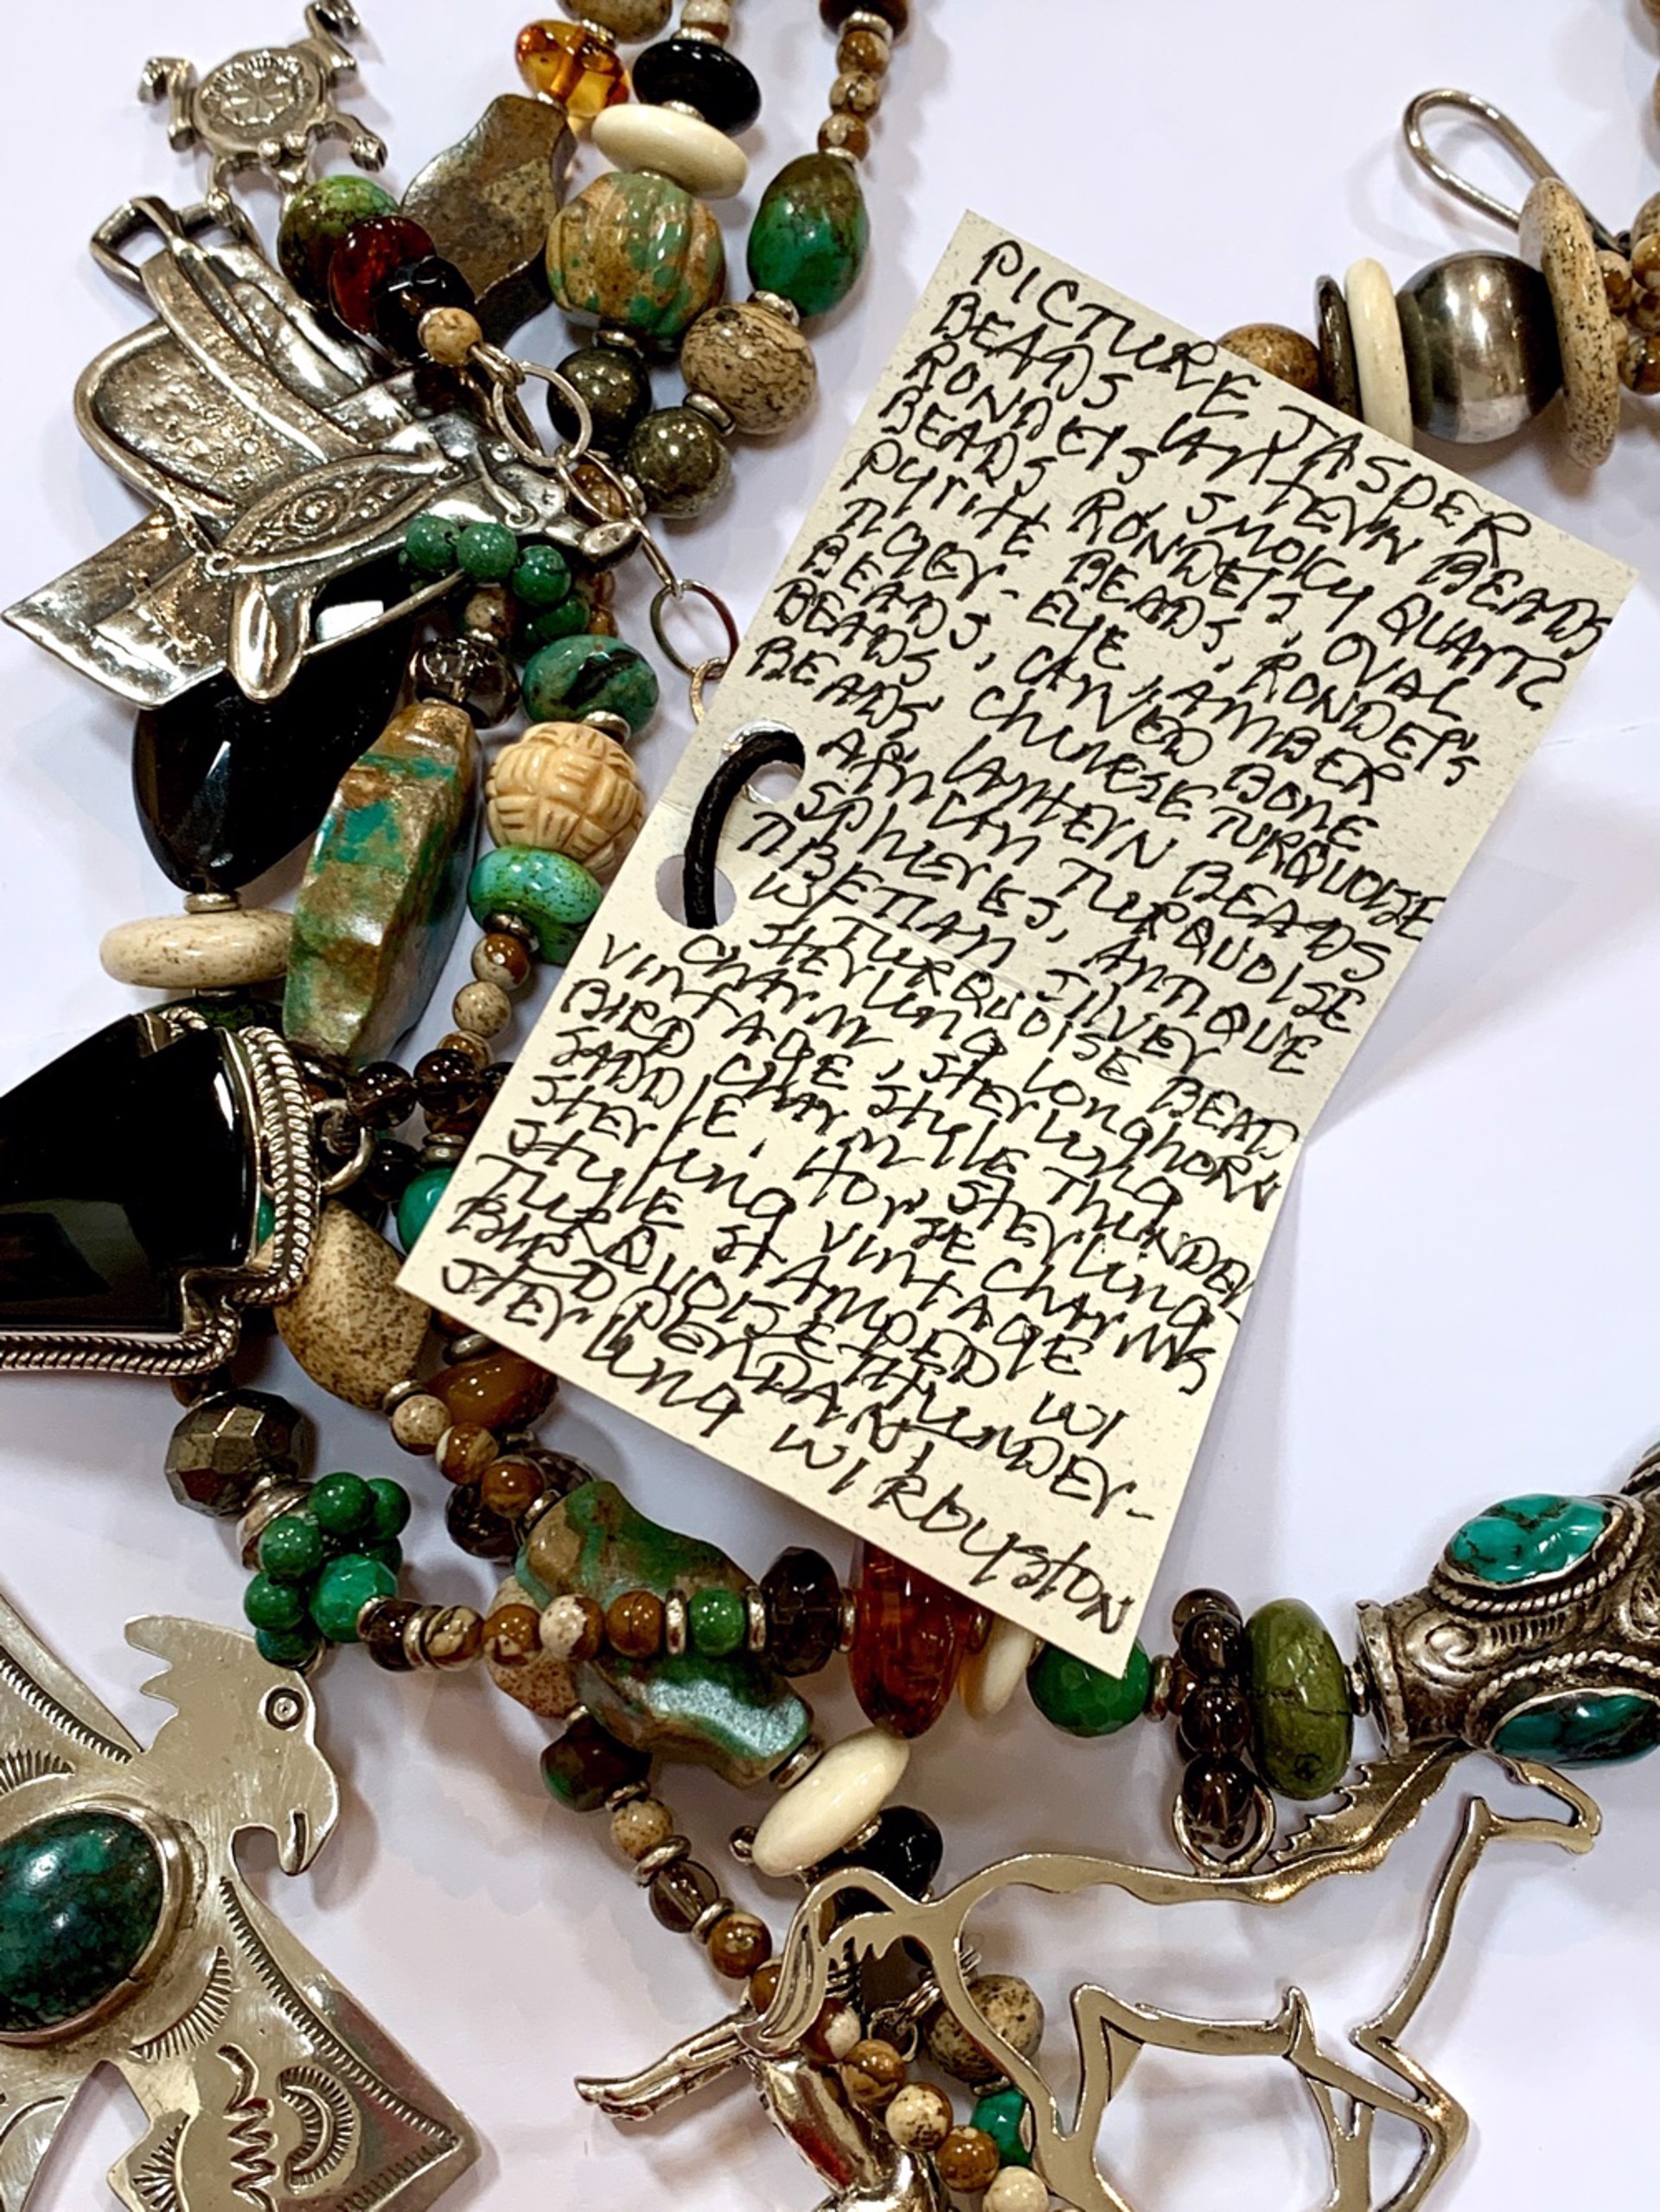 PICTURE JASPER
BEADS LANTERN BEADS
RONDEls SMOKY QUARTZ
BEADS RONDEls, OVAL
PYritE BEADS, RONDEls
TIGEr-EYE, AMBER
BEADS, CArVED BONE
BEADS CHINESE TURQUOISE
BEADS lANTERN BEADS
AFrICAN TURQUOISE
SPHErES, ANTIQUE
TIBETIAN SIlVEr
W/TURQUOISE BEAD
StErlIng longHORN
CHArM, StErlIng
VINTAGE StYlE THUNDEr
BIRD CHArM, StErlIng
SADDlE, HOrSE CHArMS
StErlIng VINTAGE
StYlE StAMPED W/
TURQUOISE THUNDEr-
BIRD PENDANt,
StErlIng W/